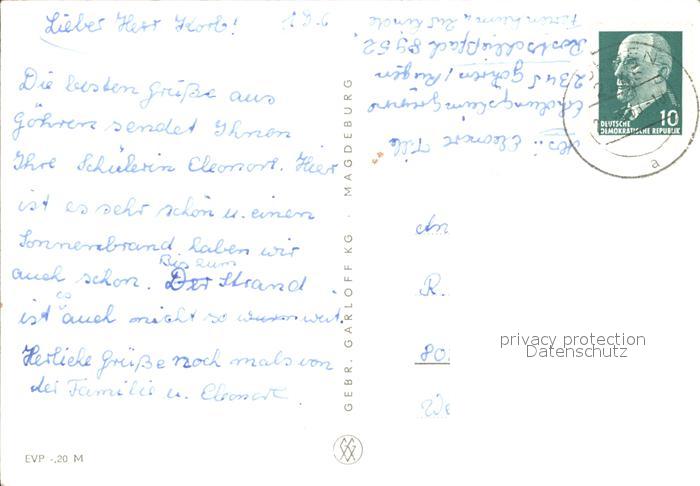 Lieber Herr Korb!
Die besten Grüße aus
Göhren sendet Ihnen
Ihre Schülerin Eleonore. Hier
ist es sehr schön u. einen
Sonnenbrand haben wir
auch schon. Bis zum Strand
ist es auch nicht so weit.
Herliche Grüße noch mals von
der Familie u. Eleonore
EVP -,20 M
GEBR. GARLOFF KG · MAGDEBURG
Abs.: Eleonore
2345 Göhren / Rügen
Postschließfach 8952
10
DEUTSCHE
DEMOKRATISCHE REPUBLIK
a
An
R.
80
privacy protection
Datenschutz